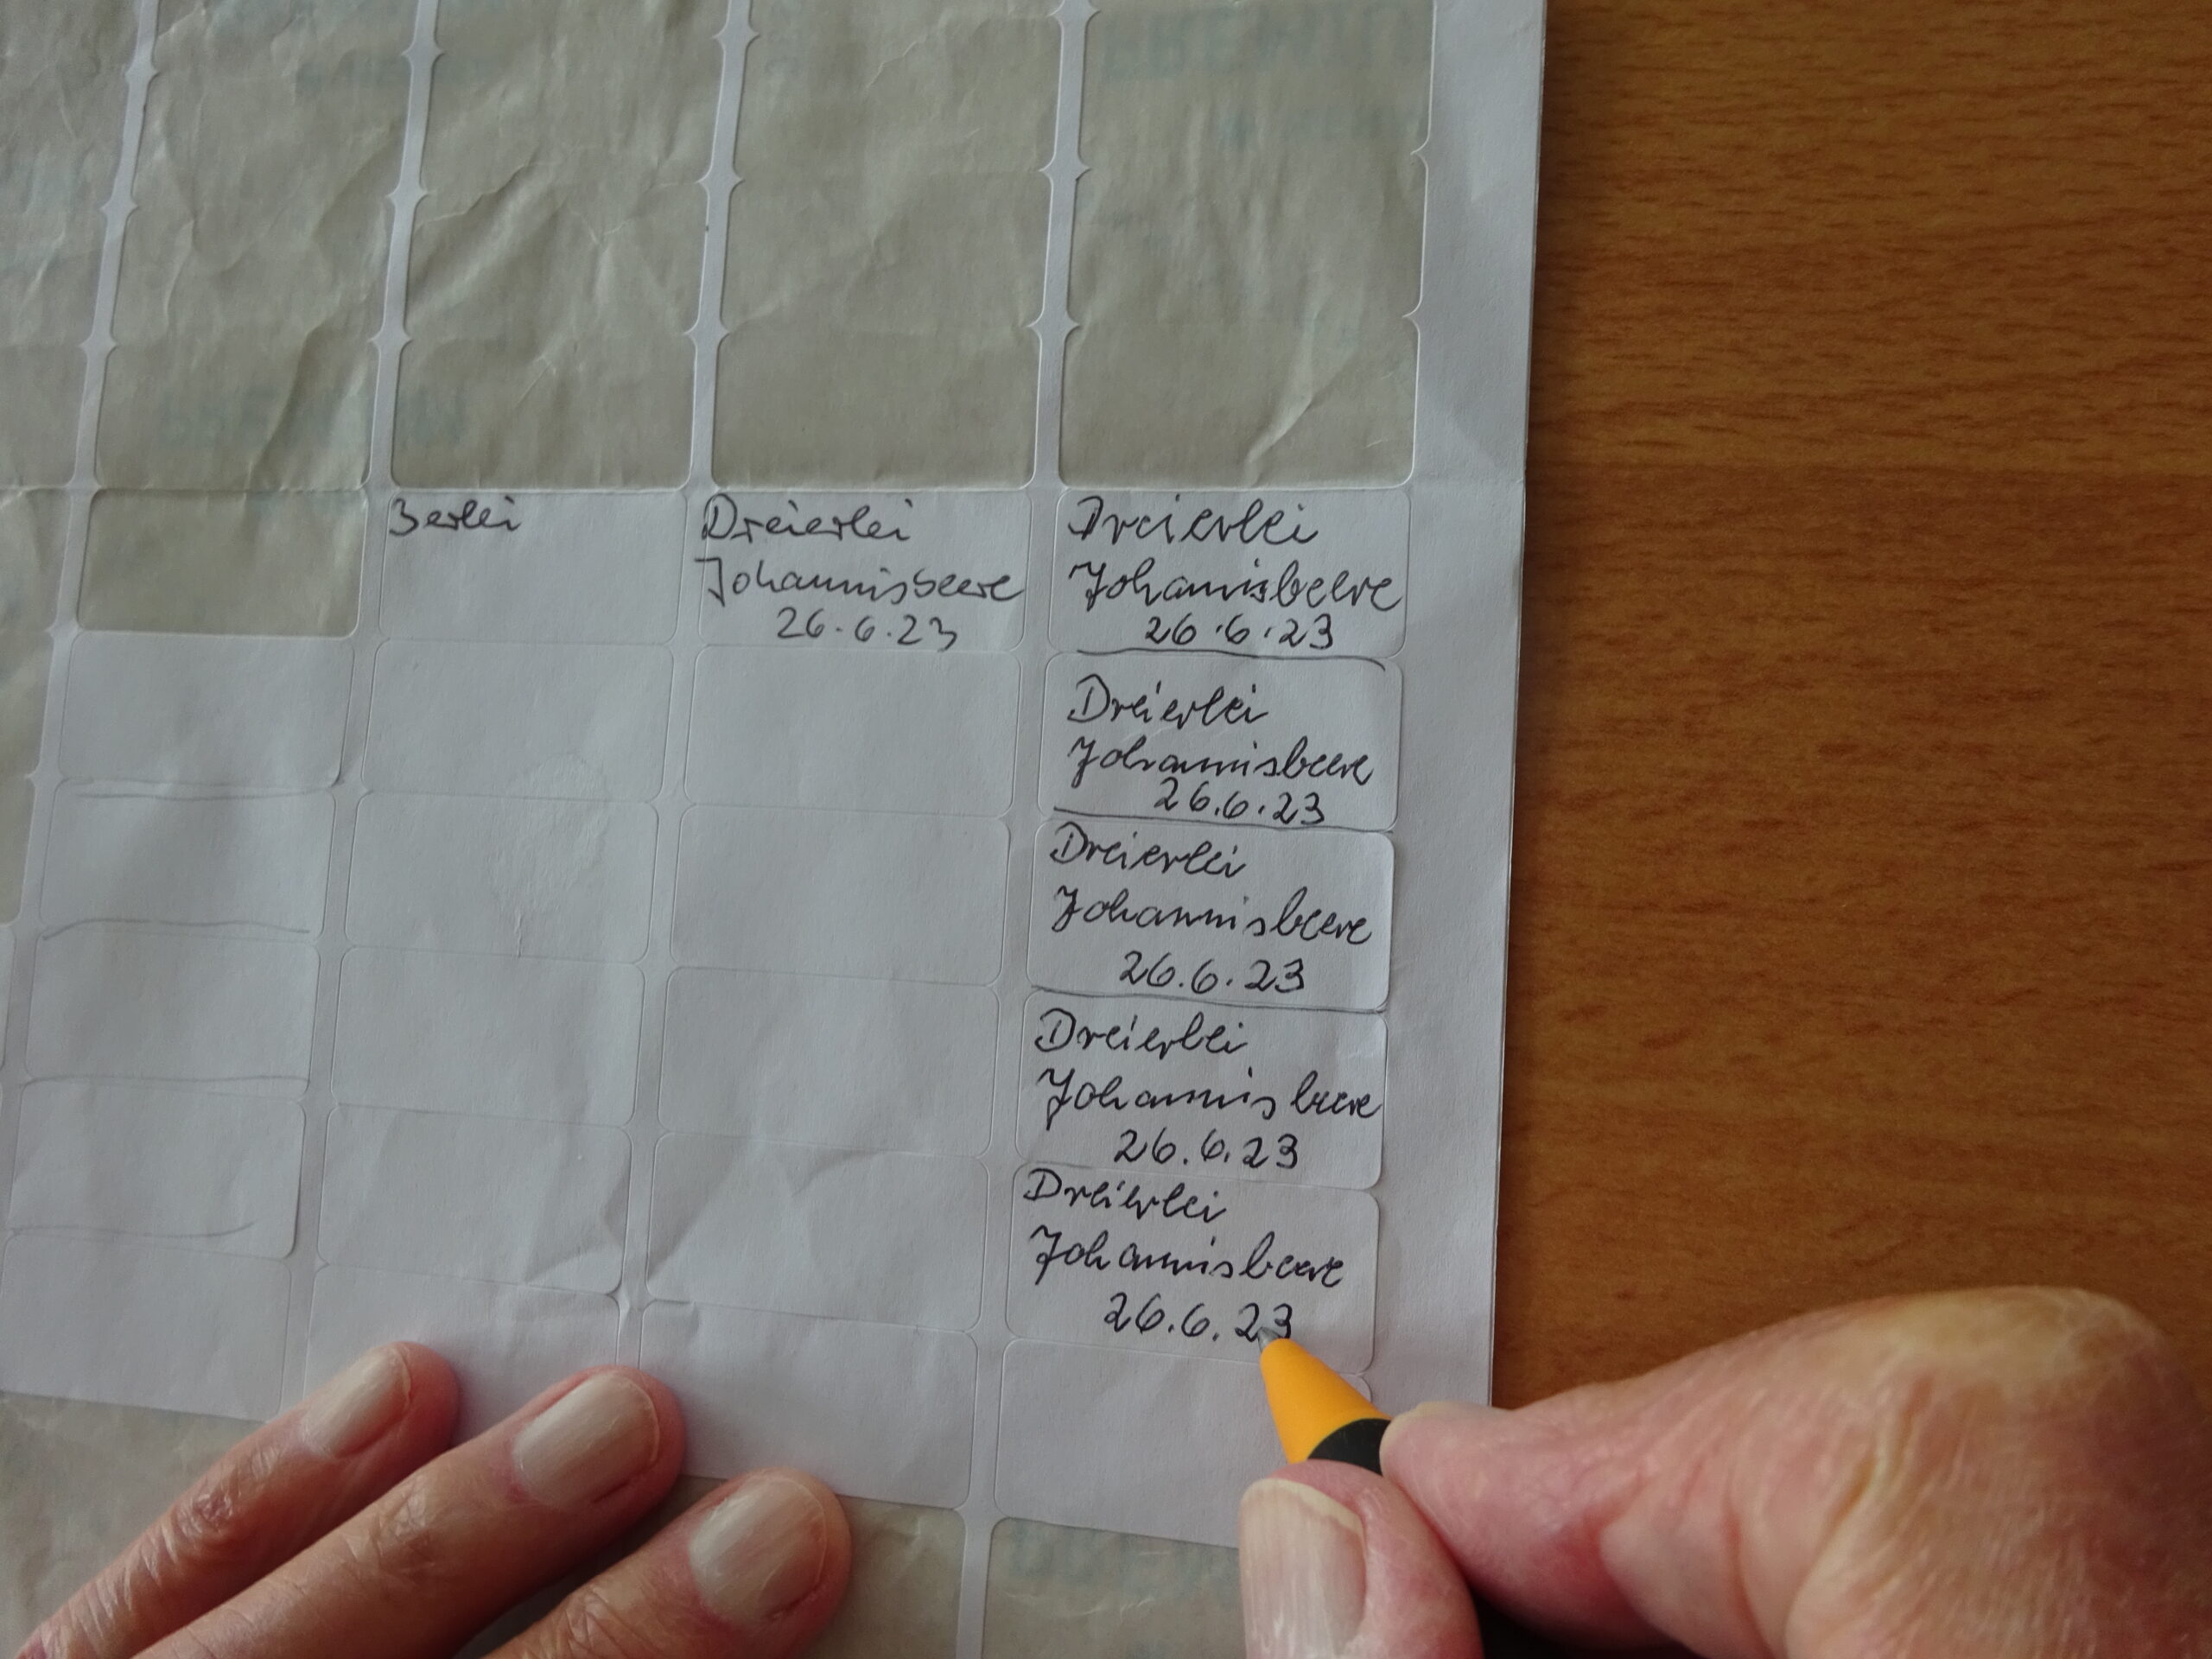 3erlei
Dreierlei
Johannisbeere
26.6.23
Dreierlei
Johannisbeere
26.6.23
Dreierlei
Johannisbeere
26.6.23
Dreierlei
Johannisbeere
26.6.23
Dreierlei
Johannisbeere
26.6.23
Dreierlei
Johannisbeere
26.6.23